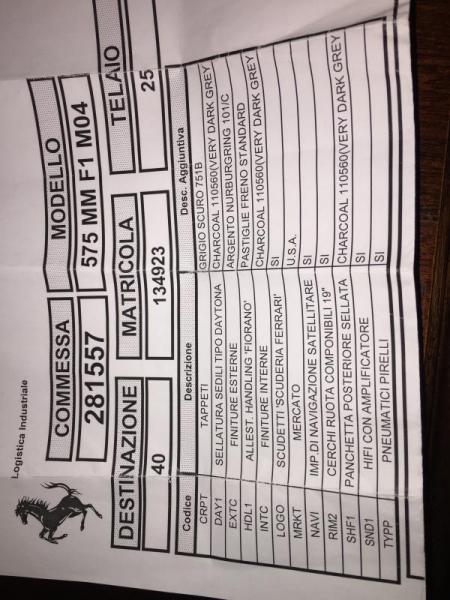 Logistica Industriale
COMMESSA MODELLO
281557 575 MM F1 M04
DESTINAZIONE MATRICOLA TELAIO
40 134923 25
Codice Descrizione Desc. Aggiuntiva
CRPT TAPPETI GRIGIO SCURO 751B
DAY1 SELLATURA SEDILI TIPO DAYTONA CHARCOAL 110560(VERY DARK GREY
EXTC FINITURE ESTERNE ARGENTO NURBURGRING 101/C
HDL1 ALLEST. HANDLING 'FIORANO' PASTIGLIE FRENO STANDARD
INTC FINITURE INTERNE CHARCOAL 110560(VERY DARK GREY
LOGO SCUDETTI 'SCUDERIA FERRARI' SI
MRKT MERCATO U.S.A.
NAVI IMP.DI NAVIGAZIONE SATELLITARE SI
RIM2 CERCHI RUOTA COMPONIBILI 19" SI
SHF1 PANCHETTA POSTERIORE SELLATA CHARCOAL 110560(VERY DARK GREY
SND1 HIFI CON AMPLIFICATORE SI
TYPP PNEUMATICI PIRELLI SI